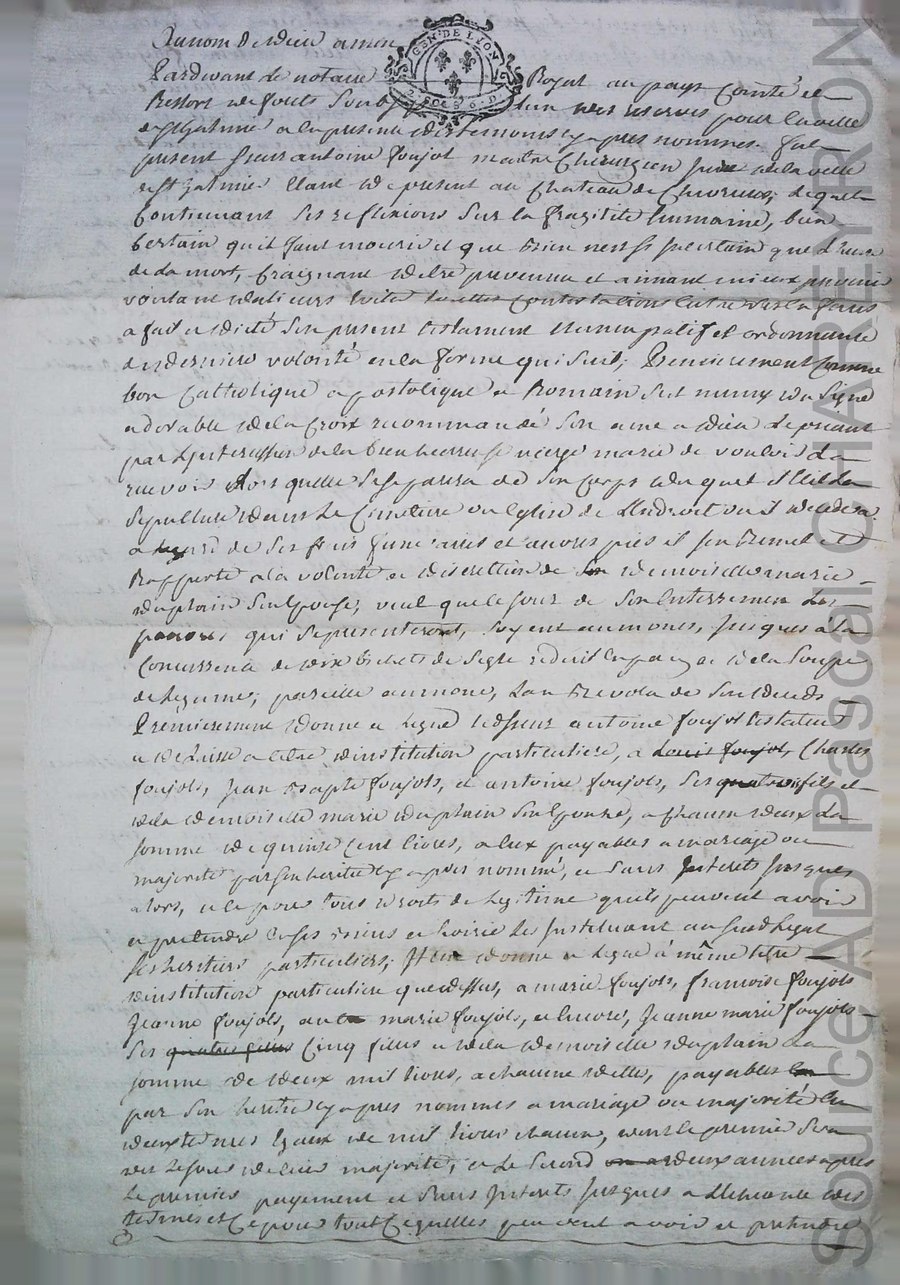 GEN. DE LION
2. SOLS 6. D.
Au nom de dieu amen
Pardevant le notaire Royal au pays Comté et
Ressort de forest pour la ville
de St Galmier a la presence des temoins cy apres nommés. fut
present sieur antoine foujol maitre Chirurgien juré de la ville
de St Galmier Etant de present au Chateau de lequel
Continuant ses reflexions sur la fragilité humaine, bien
Certain qu'il faut mourir et que Rien n'est si incertain que l'heure
de la mort, Craignant d'etre prevenu et aimant mieux
voulant d'ailleurs toutes Contestations entre
a fait et dicté son present testament nuncupatif et ordonnance
de derniere volonté en la forme qui suit; Premierement Comme
bon Catholique apostolique et Romain s'est muny du signe
adorable de la Croix recommandé son ame a dieu le priant
par l'intercession de la bienheureuse vierge marie de vouloir la
recevoir lors quelle se separera de son Corps duquel il Elit la
sepulture dans le Cimetiere ou Eglise de l'Endroit ou il decedera
a de ses frais funeraires et œuvres pies il s'en Remet et
Rapporte a la volonté et discretion de demoiselle marie
duplain son Epouse, veut que le jour de son Enterrement les
pauvres qui se presenteront, soyent aumonés, jusques a la
Concurrence de dix bichets de segle reduit en pain et de la soupe
de legume; pareille aumone, l'an Revolu de son deceds
Premierement donne et legue ledit sieur antoine foujol testateur
et delaisse a titre d'institution particuliere, a Louis foujols, Charles
foujols, Jean Bapte foujols, et antoine foujols, ses quatre fils et
de la demoiselle marie duplain son Epouse, a chacun deux la
somme de quinze Cent livres, a Eux payables a mariage ou
majorité par son heritier cy apres nommé, et sans Interets jusques
alors, et ce pour tous droits de legitime qu'ils peuvent avoir
et pretendre a ses biens et hoirie les Instituant au susd legat
ses heritiers particuliers; Item donne et legue a même titre
d'institution particuliere que dessus, a marie foujols, francoise foujols
Jeanne foujols, autre marie foujols, et encore, Jeanne marie foujols
ses quatre filles Cinq filles et de la demoiselle duplain la
somme de deux mil livres, a chacune d'elle, payables
par son heritier cy apres nommés a mariage ou majorité En
deux termes Egaux de mil livres chacun, dont le premier sera
des le jour de leur majorité, et le second deux années apres
le premier payement et sans Interets jusques a l'Echeance des
termes et Ce pour tout Ce qu'elles peuvent avoir et pretendre
Source AD Pascal CHIAREYRON